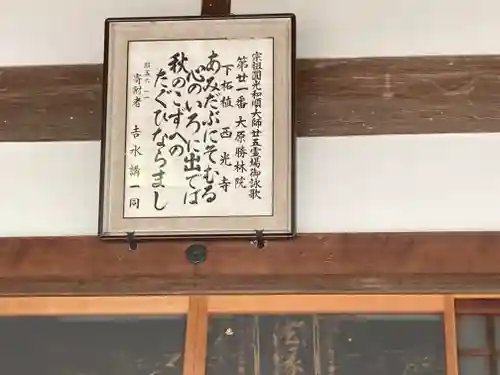 宗祖圓光和順大師廿五霊場御詠歌
第廿一番 大原勝林院
下柘植 西光寺
あみだぶにそむる
心のいろに出では
秋のこずへの
たぐひならまし
昭五六・一一
寄附者 吉水講一同